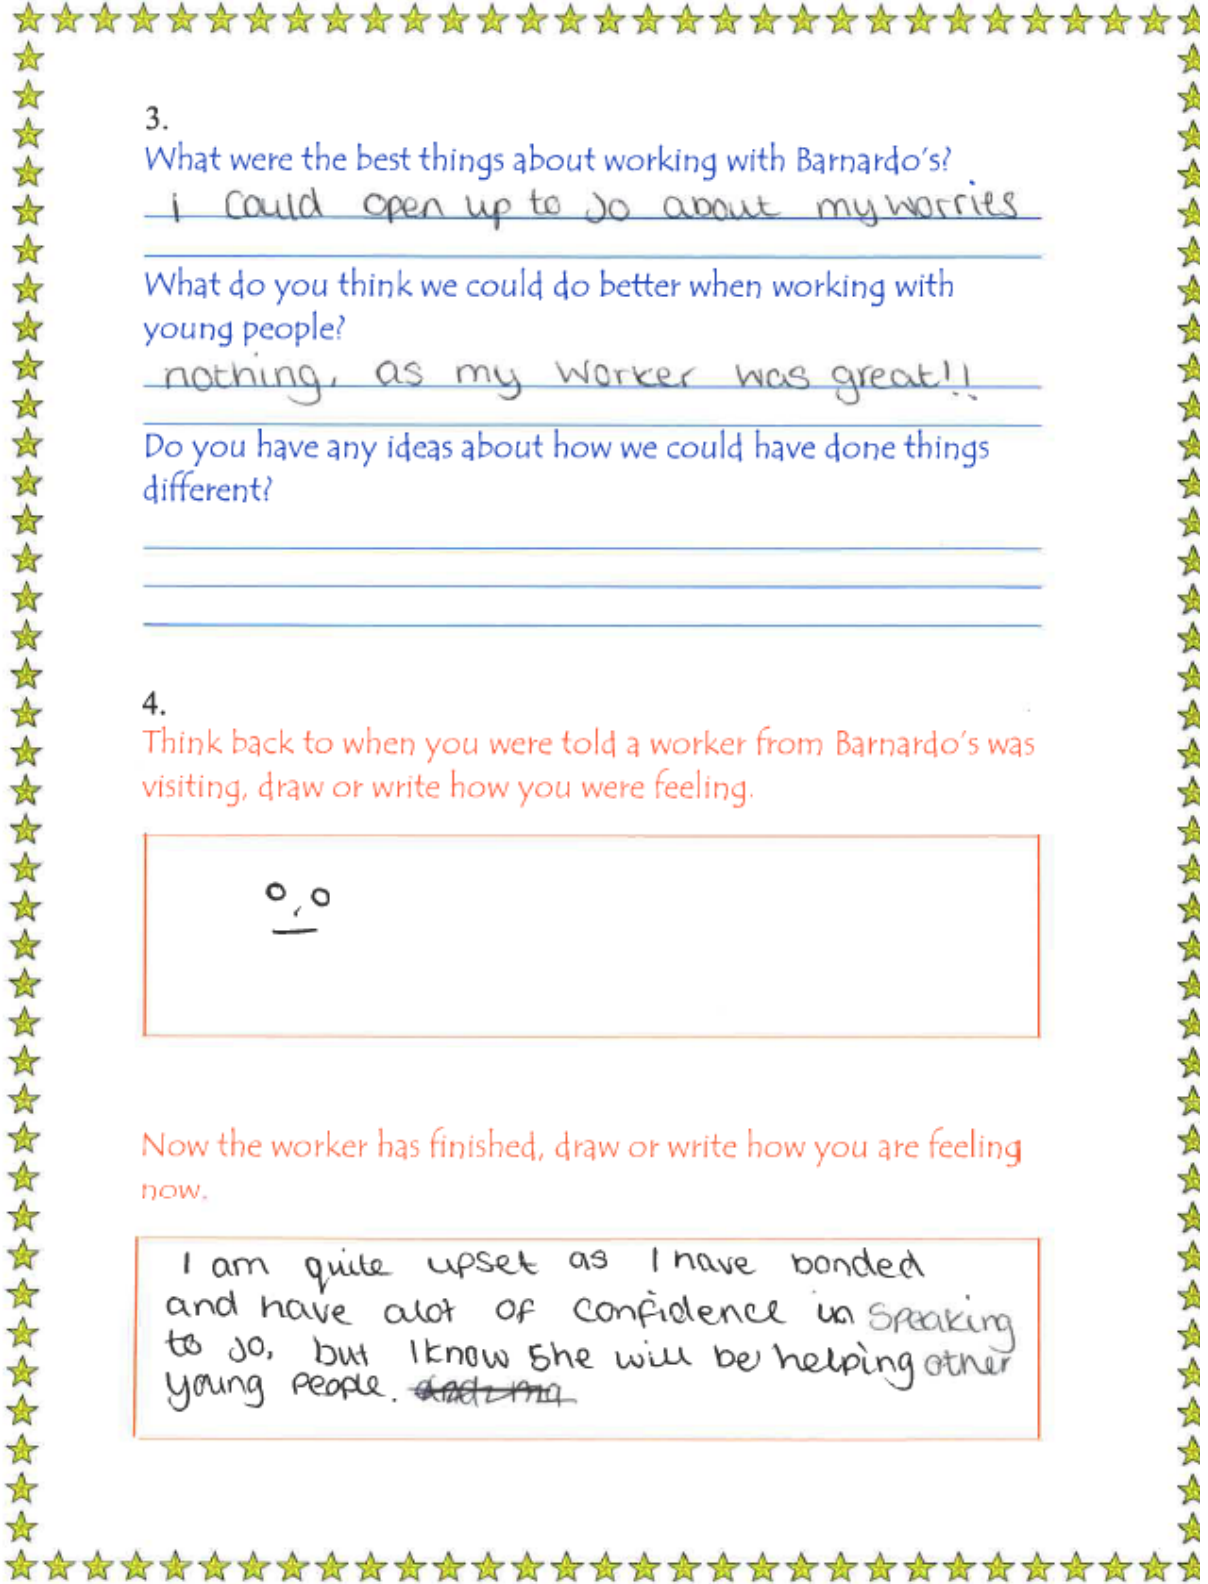 3.
What were the best things about working with Barnardo's?
i could open up to Jo about my worries
What do you think we could do better when working with
young people?
nothing, as my worker was great!!
Do you have any ideas about how we could have done things
different?
4.
Think back to when you were told a worker from Barnardo's was
visiting, draw or write how you were feeling.
Now the worker has finished, draw or write how you are feeling
now.
I am quite upset as I have bonded
and have alot of confidence in speaking
to Jo, but I know she will be helping other
young people.